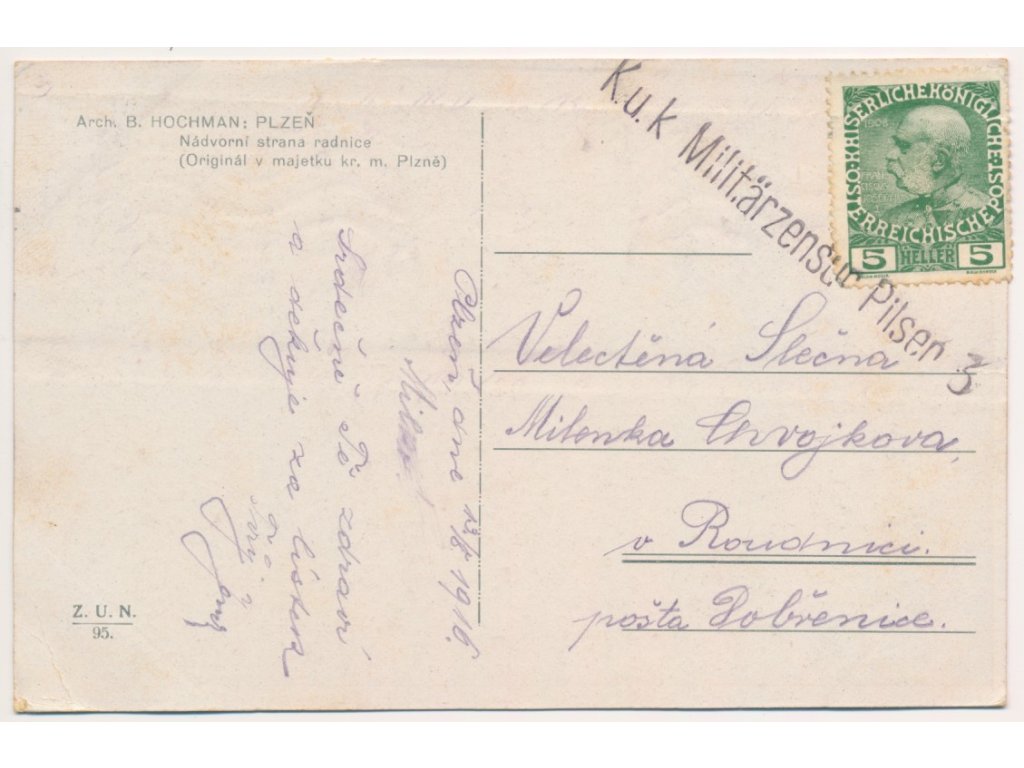 Arch. B. HOCHMAN: PLZEŇ
Nádvorní strana radnice
(Originál v majetku kr. m. Plzně)
K.u.k Militärzensur Pilsen 3
KAISERLICHE KÖNIGLICHE ÖSTERREICHISCHE POST
1908
5 HELLER 5
Plzeň, dne 1916.
Srdečně Tě zdraví
a děkuje za lístek
Velectěná Slečna
Milenka Chvojkova,
v Roudnici.
pošta Dobřenice.
Z. U. N.
95.